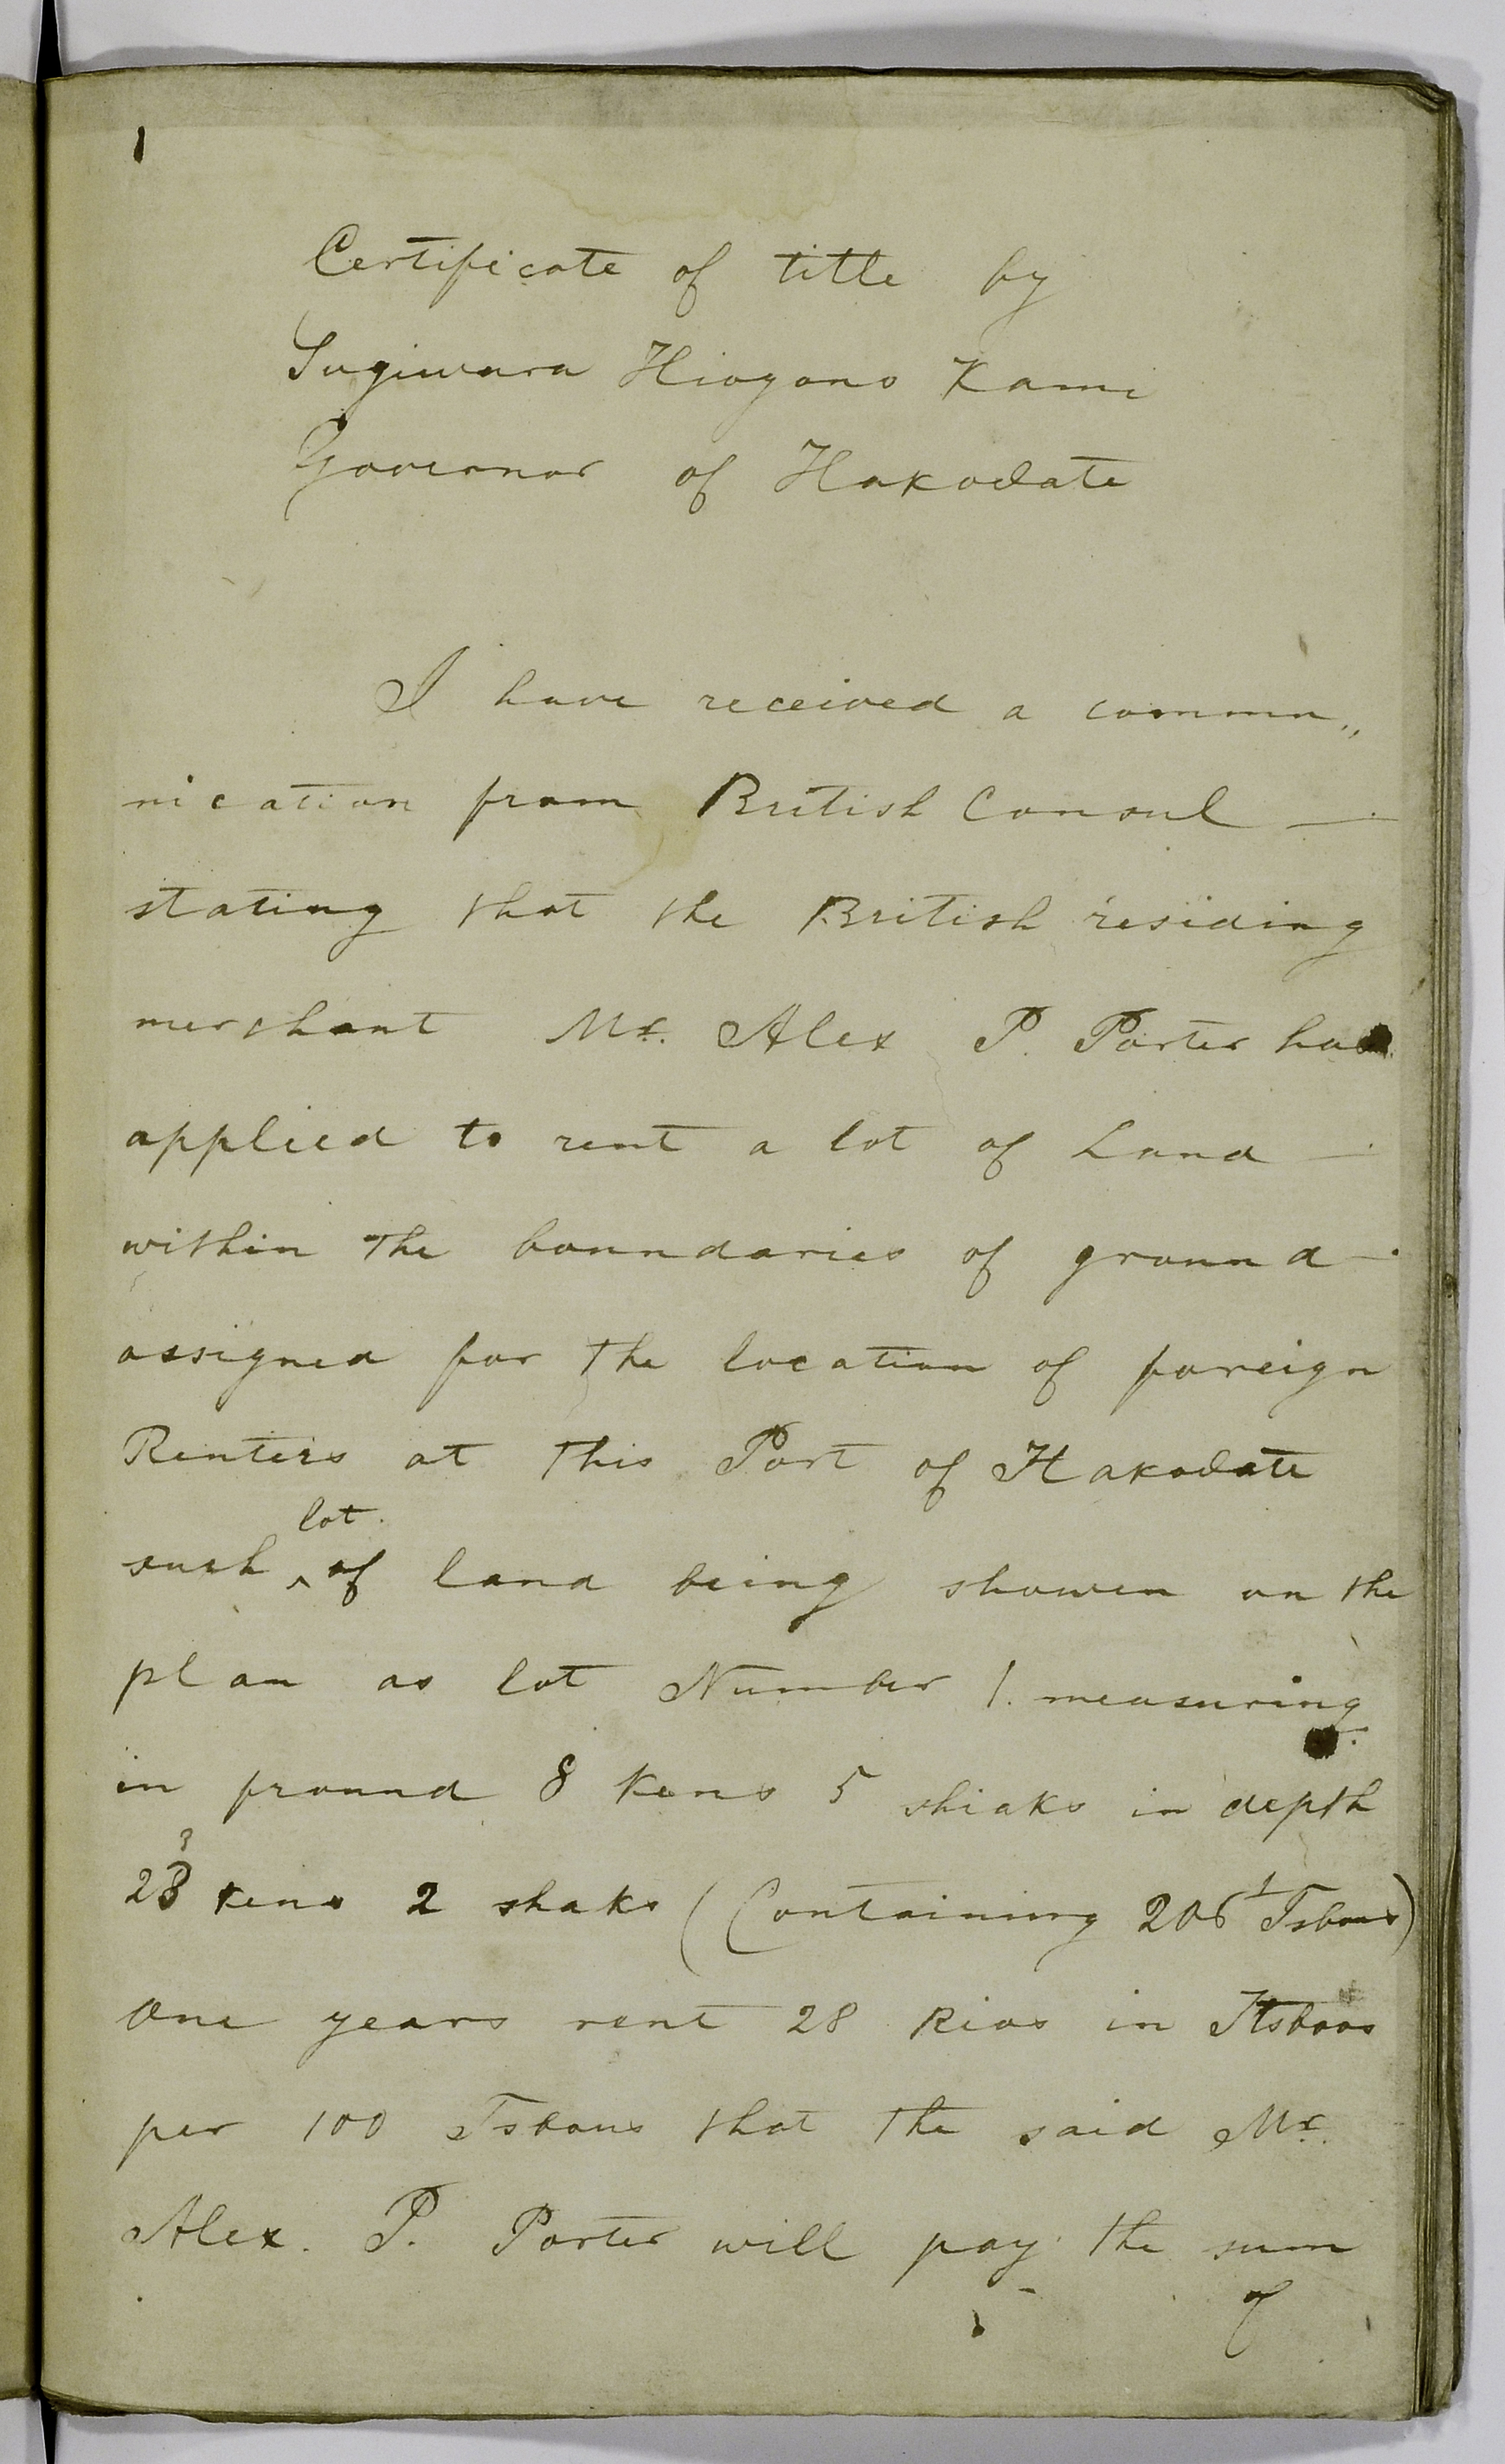 1
Certificate of title by
Sugiwura Hiogono Kami
Governor of Hakodate
I have received a commu„
nication from British Consul —
stating that the British residing
merchant Mr. Alex P. Porter has
applied to rent a lot of Land —
within the boundaries of ground —
assigned for the location of foreign
Renters at this Port of Hakodate
lot
such ^ of land being showen on the
plan as lot Number 1. measuring
in fround 8 Kens 5 shiaks in depth
23 kens 2 shaks (Containing 206 Tsbous)
One years rent 28 Rios in Itsboos
per 100 Tsbous that the said Mr.
Alex. P. Porter will pay the sum
of